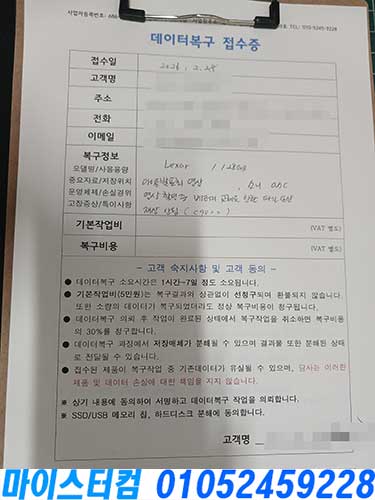 사업자등록번호: 686
TEL: 010-5245-9228
데이터복구 접수증
접수일 2026. 2. 24
고객명
주소
전화
이메일
복구정보
모델명/사용용량 Lexar / 128GB
중요자료/저장위치 영상, 소니
운영체제/손실경위 영상 촬영중 배터리 교체로 인한
고장증상/특이사항 재생 안됨
기본작업비 (VAT 별도)
복구비용 (VAT 별도)
- 고객 숙지사항 및 고객 동의 -
● 데이터복구 소요시간은 1시간~7일 정도 소요됩니다.
● 기본작업비(5만원)는 복구결과와 상관없이 선청구되며 환불되지 않습니다.
또한 소량의 데이터가 복구되었더라도 정상 복구비용이 청구됩니다.
● 데이터복구 의뢰 후 작업이 완료된 상태에서 복구작업을 취소하면 복구비용
의 30%를 청구합니다.
● 데이터복구 과정에서 저장매체가 분해될 수 있으며 결과물 또한 분해된 상태
로 전달될 수 있습니다.
● 접수된 제품이 복구작업 중 기존데이터가 유실될 수 있으며, 당사는 이러한
제품 및 데이터 손실에 대한 책임을 지지 않습니다.
※ 상기 내용에 동의하여 서명하고 데이터복구 작업을 의뢰합니다.
※ SSD/USB 메모리 칩, 하드디스크 분해에 동의합니다.
고객명
마이스터컴 01052459228